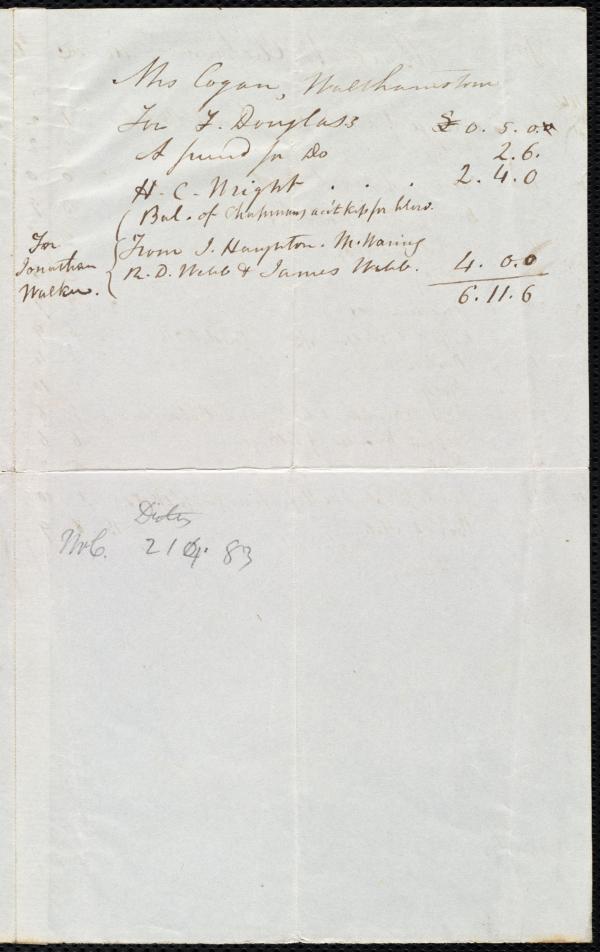 Mrs Cogan, Walthamstow
For F. Douglass £ 0. 5. 0.
A friend for Do 2. 6.
H. C. Wright . . . 2. 4. 0
(Bal. of Chapmans acct kept for him.
For Jonathan Walker. { From J. Haughton. M. Waring
R. D. Webb & James Webb. 4. 0. 0
6. 11. 6
216. 83